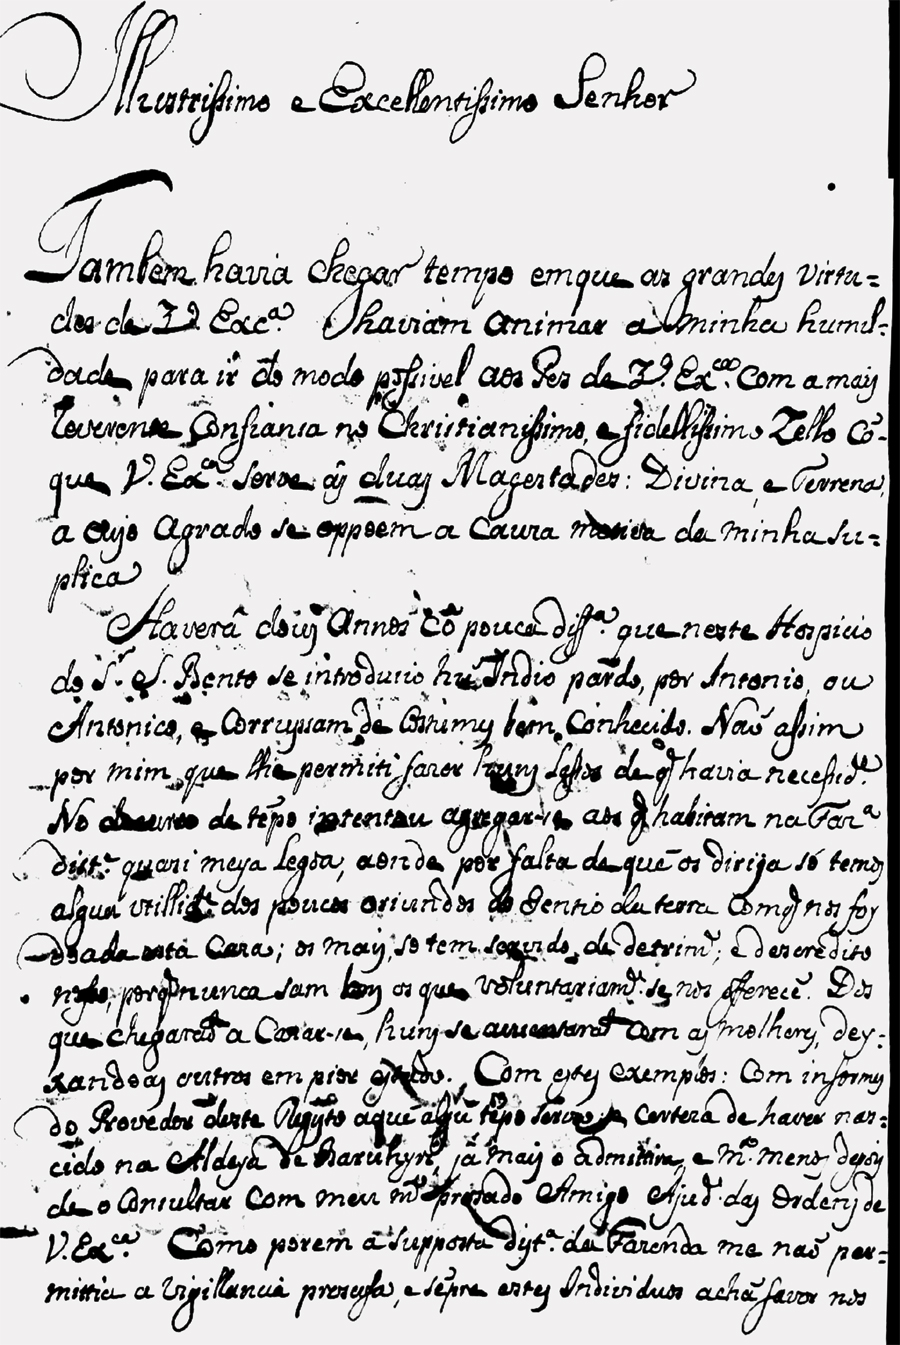 Illustrissimo e Excellentissimo Senhor
Tambem havia chegar tempo emque as grandes virtu=
des de V. Exca. haviam animar a minha humil=
dade para ir do modo possivel aos Pes de V. Exca. com a mais
Reverente Confiança no Christianissimo, e fidellissimo Zello cõ-
que V. Exca. serve âs duas Magestades: Divina, e Terrena,
a cujo Agrado se oppoem a Causa motiva da minha su=
plica
Haverâ dous Annos cõ pouca diffa. que neste Hospicio
do Sr. S. Bento se introduzio hũ Indio pardo, por Antonio, ou
Antonico, e Corrupsam de Costumes bem Conhecido. Naõ assim
por mim que lhe permiti fazer huns de q̃ havia necesside.
No decurso de tẽpo intentou agregar-se aos q̃ habitam na Faza.
distte. quasi meya Legoa, aonde por falta de quẽ os dirija só temos
algua utillide. dos poucos oriundos do Gentio da terra Comq̃ nos foy
doada esta Caza; os mais, so tem servido de detrimto., e descredito
nosso, porq̃ nunca sam bons os que voluntariamte. se nos offerecẽ. Dos
que chegaraõ a Cazar-se, huns se auzentaraõ com as molheres, dey=
xando as outros em pior estado. Com estes exemplos: Com informes
do Provedor deste Registo aquẽ algũ tẽpo servio, e Certeza de haver nas=
cido na Aldeya de já mais o admittira, e mto. menos depois
de o Consultar Com meu mto. prezado Amigo Ajude. das Ordens de
V. Exca. Como porem a supposta distca. da Fazenda me naõ per=
mittia a vigillancia precisa, e sẽpre estes Individuos achã favor nos